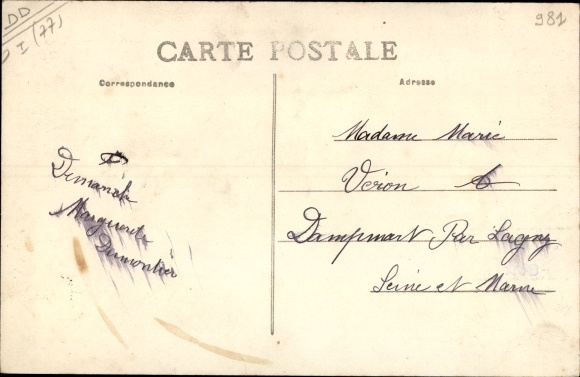 DD
I (77)
981
CARTE POSTALE
Correspondance
Adresse
Madame Marie
Veron
Dampmart Par Lagny
Seine et Marne
Marguerite
Dumontier